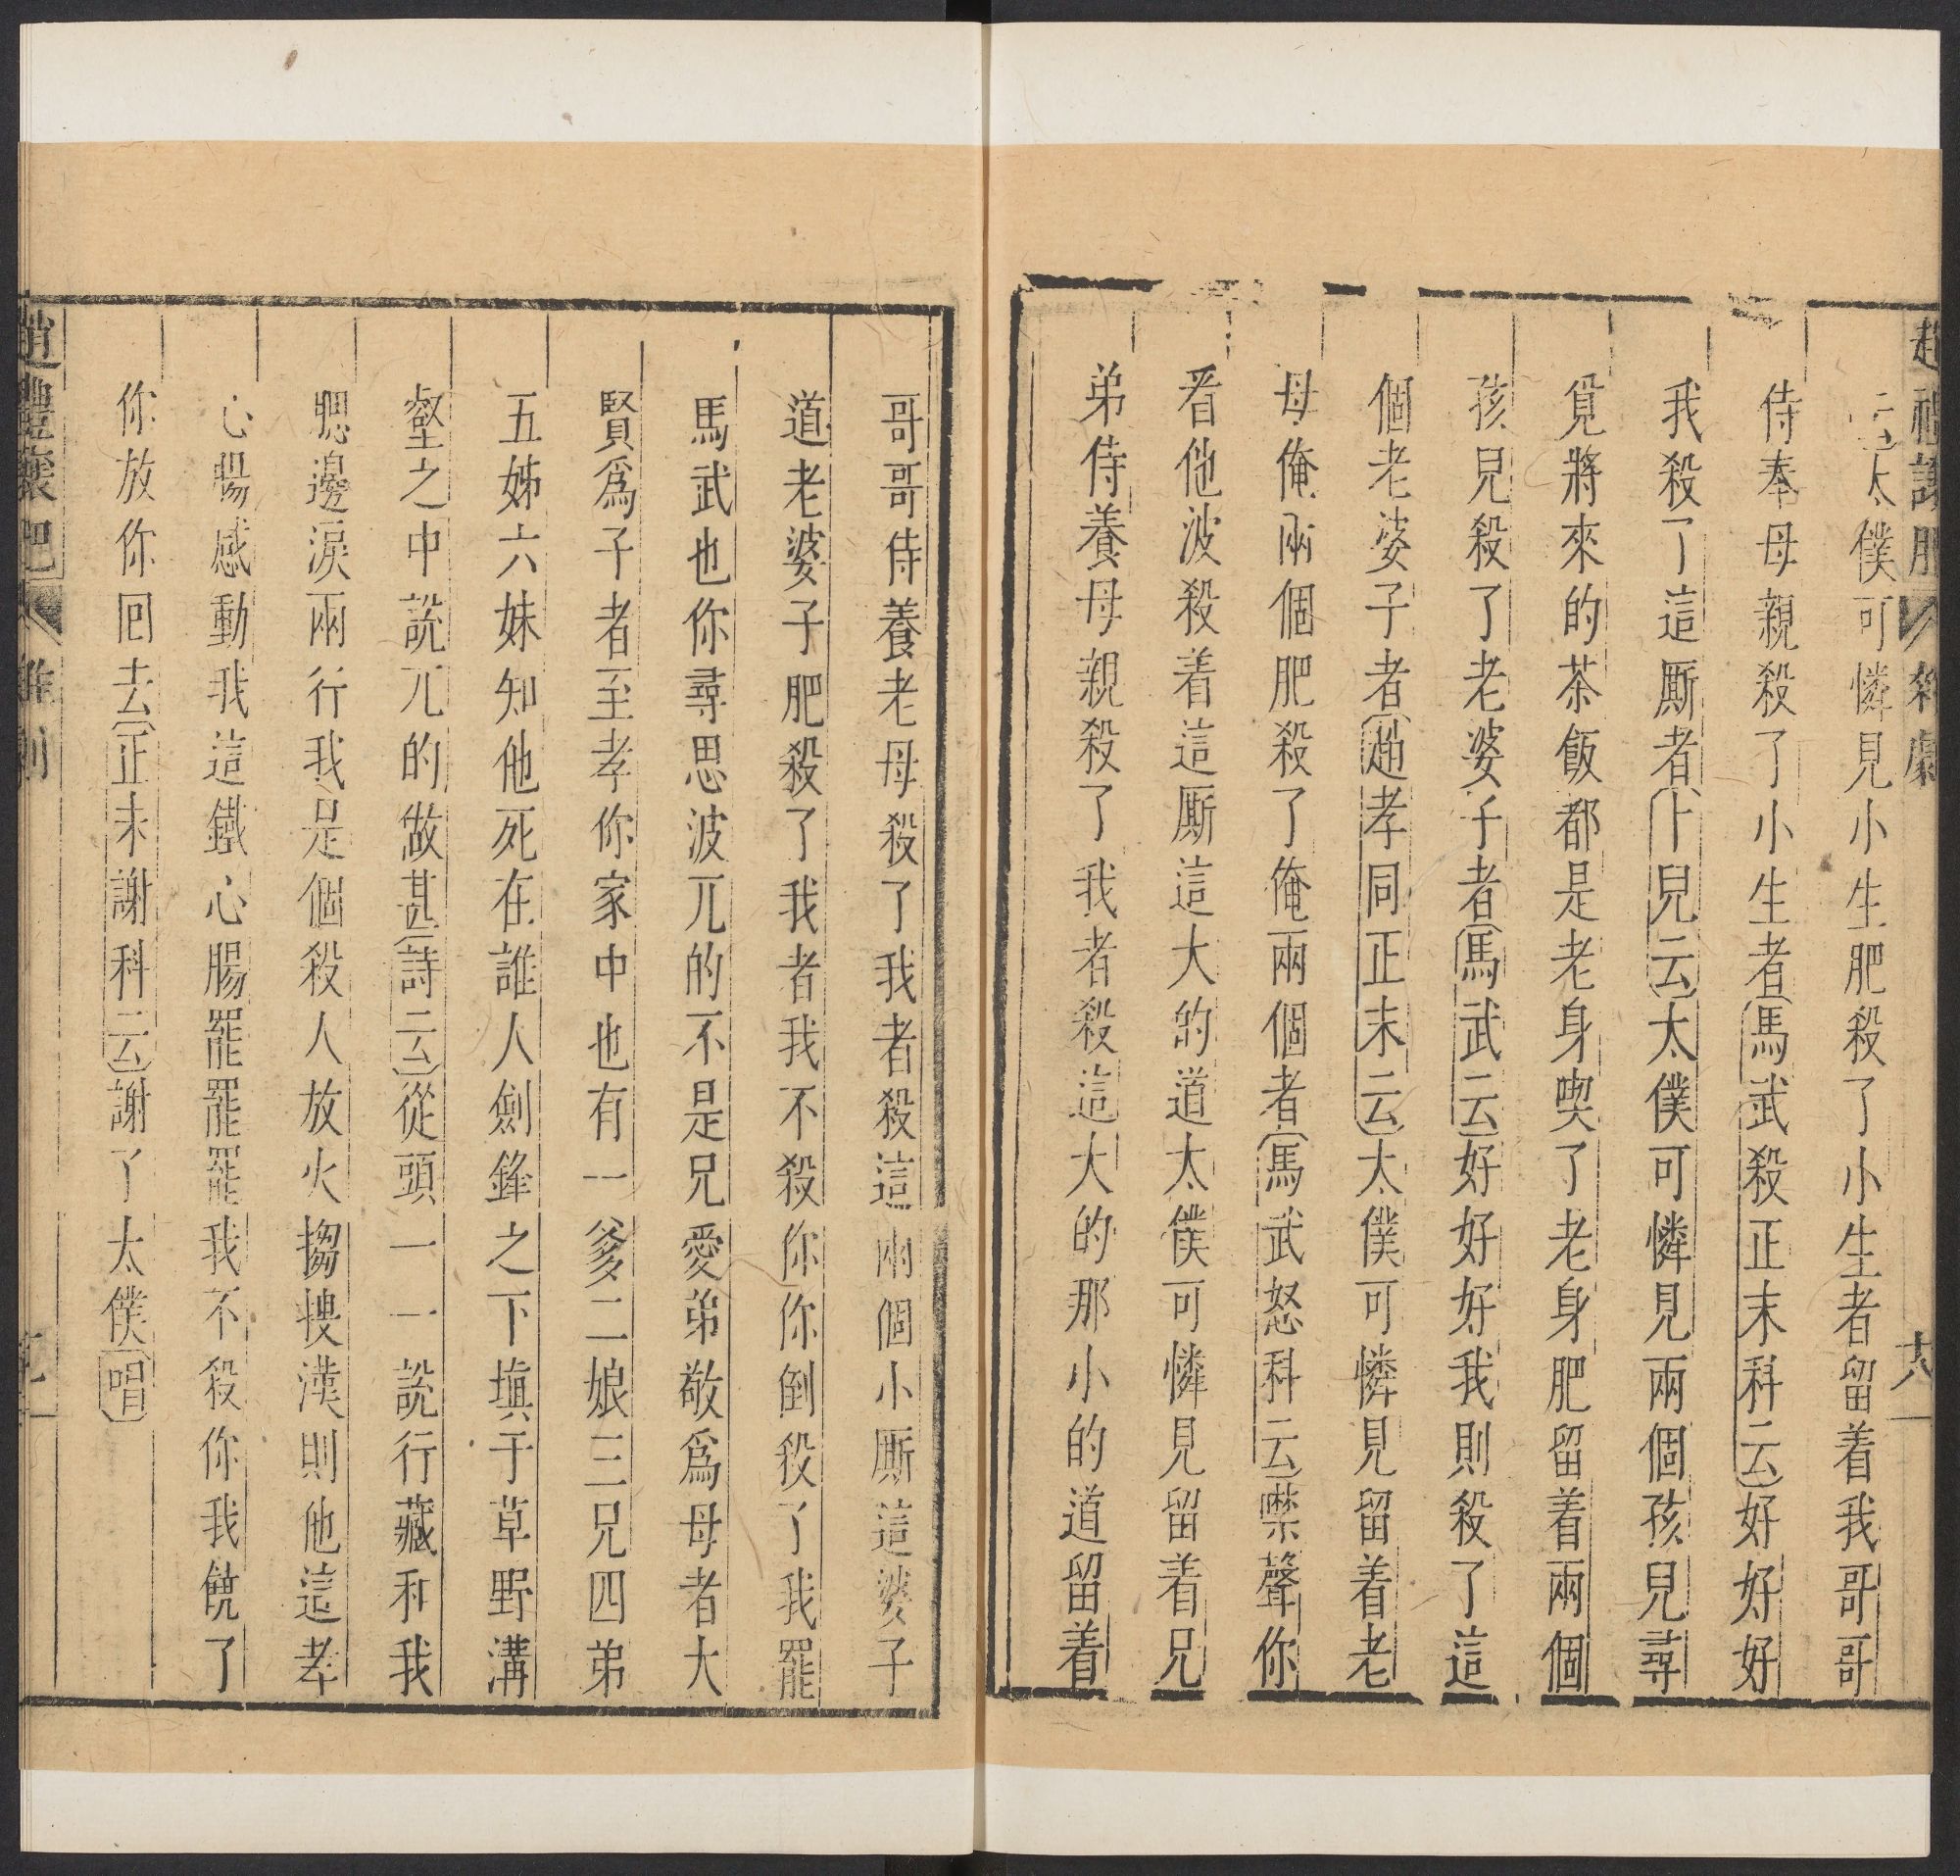 趙禮讓肥 雜劇 十八
云太僕可憐見小生肥殺了小生者留着我哥哥
侍奉母親殺了小生者(馬武殺正末科云)好好好
我殺了這厮者(卜兒云)太僕可憐見兩個孩兒尋
覓將來的茶飯都是老身喫了老身肥留着兩個
孩兒殺了老婆子者(馬武云)好好好我則殺了這
個老婆子者(趙孝同正末云)太僕可憐見留着老
母俺兩個肥殺了俺兩個者(馬武怒科云)噤聲你
看他波殺着這厮這大的道太僕可憐見留着兄
弟侍養母親殺了我者殺這大的那小的道留着
哥哥侍養老母殺了我者殺這兩個小厮這婆子
道老婆子肥殺了我者我不殺你你倒殺了我罷
馬武也你尋思波兀的不是兄愛弟敬爲母者大
賢爲子者至孝你家中也有一爹二娘三兄四弟
五姊六妹知他死在誰人劍鋒之下塡于草野溝
壑之中說兀的做甚(詩云)從頭一一說行藏和我
腮邊淚兩行我是個殺人放火搊搜漢則他這孝
心腸感動我這鐵心腸罷罷罷我不殺你我饒了
你放你回去(正末謝科云)謝了太僕(唱)
趙禮讓肥 雜劇